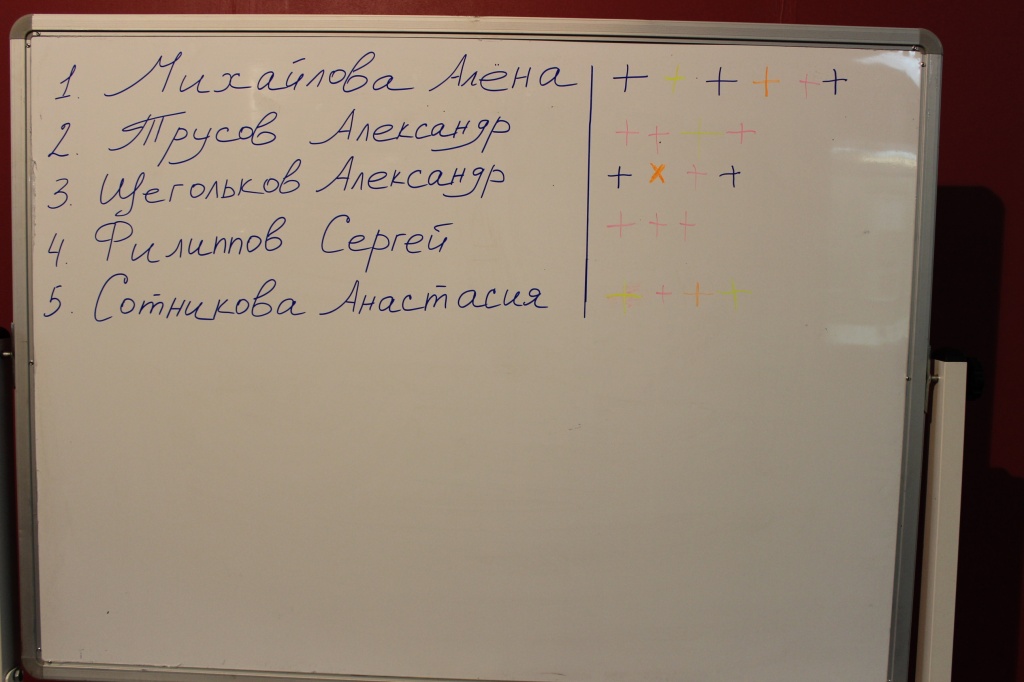 1. Михайлова Алёна + + + + + +
2. Трусов Александр + + + +
3. Щегольков Александр + x + +
4. Филиппов Сергей + + +
5. Сотникова Анастасия + + + +